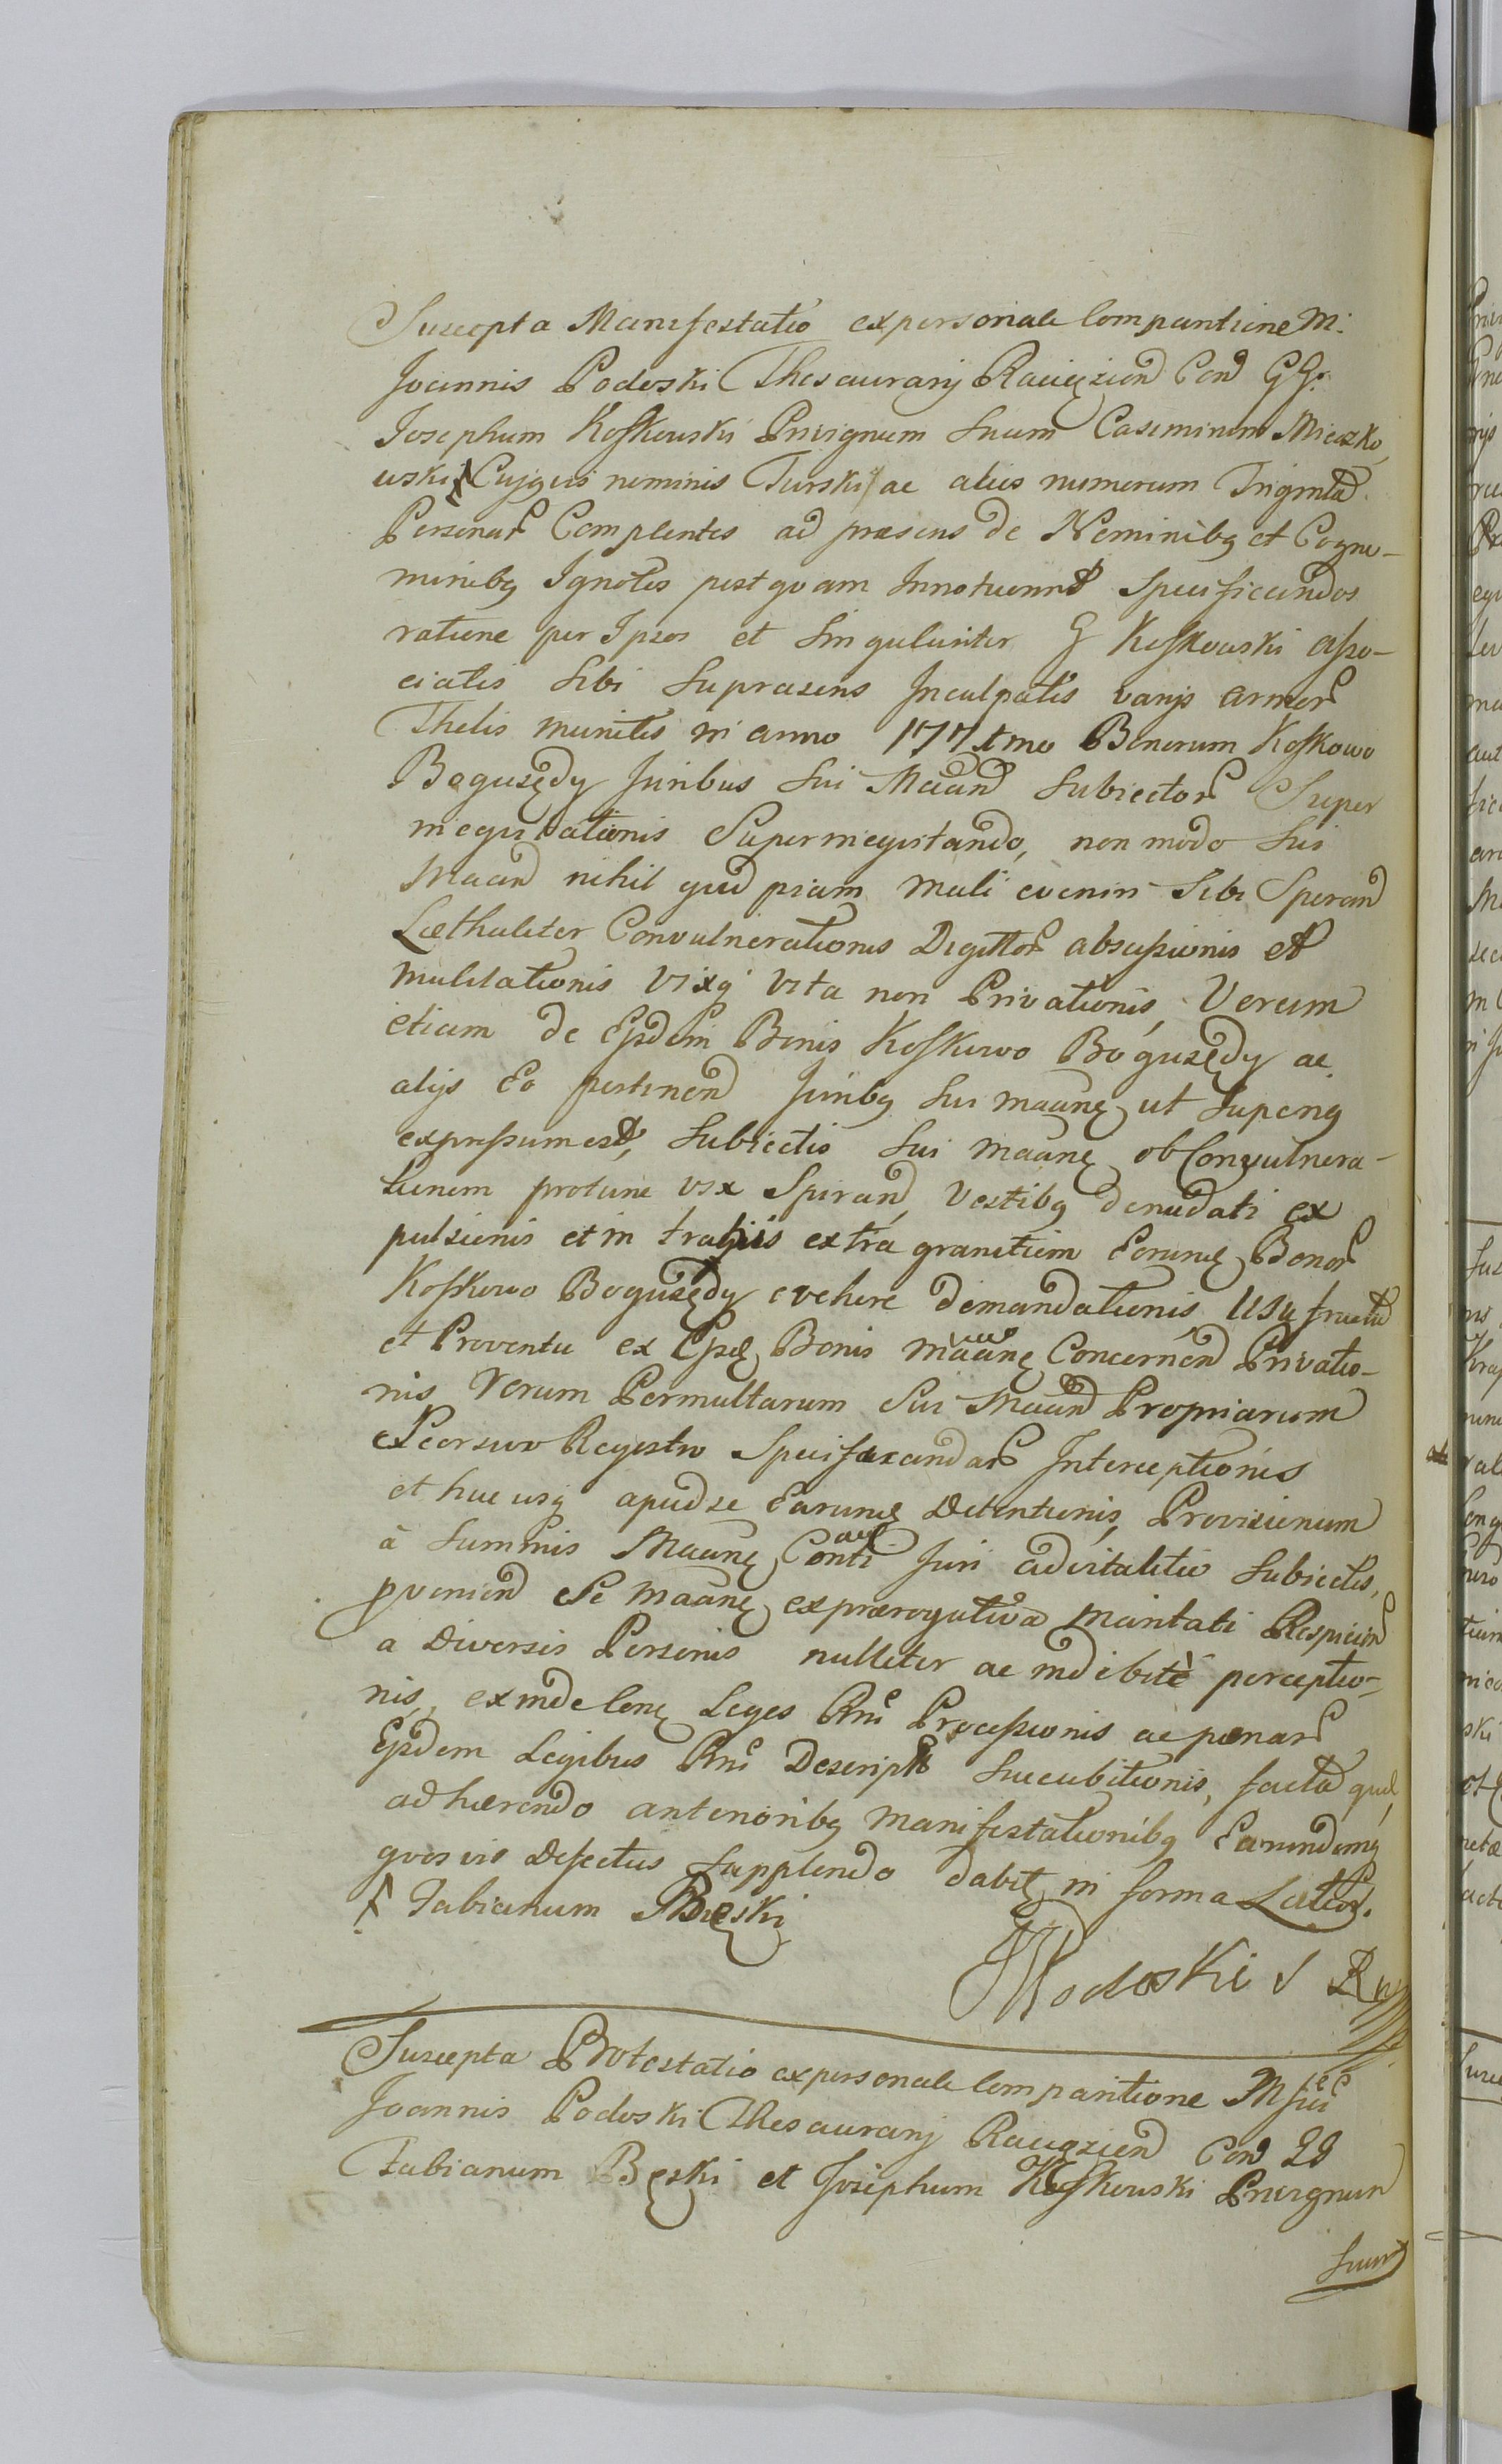 Suscepta Manifestatio ex personali Comparitione M:
Joannis Podoski Thesaurarij Raciązien Con GG.
Josephum Koskowski Privignum Suum Casimirum Mieszko,
wski Cujgvis nominis Turski ac alios numerum Triginta
Personar Complentes ad praesens de Nominibq et Cogno-
minibq Ignotos post qvam Innotuerint Specificandos
ratione per Ipsos et Singulariter G Koskowski asso-
ciatis Sibi Inculpatis varijs armor
Thelis munitis in anno Bonorum Koskowo
Boguszędy Juribus Sui Maan Subiector Super
inequitationis Superinequitando, non modo Sui
Maan nihil quid piam mali evenire Sibi Speran
Laethaliter Convulnerationis Digitor abscissionis et
mutilationis vixq vita non Privationis, Verum
etiam de Ejsdem Bonis Koskowo Boguszędy ac
alijs Eo pertinen Juribq Sui maane ut Superiq
expressum est, Subiectis Sui maane ob Convulnera-
tionem protunc vix Spiran, Vestibq denudati ex
pulsionis et in trahis extra granitiem Bonor
Koskowo Boguszędy evehere demandationis Usu fructu
et Proventu ex Bonis maane Concernen Privatio-
nis Verum Permultarum Sui Maan Propriarum
Seorsivo Regestro Specificandar Interceptionis
et huc usq apud se Detentionis, Provisionum
à Summis Maane Juri advitalitio Subiectis,
pvenien Se maane ex praerogativa maritali Respicien
a Diversis Personis nulliter ac indebitè perceptio-
nis, exinde Leges Rni Processionis ac paenar
Ejsdem Legibus Rni Descript Succubitionis, facta
adhaerendo anterioribq Manifestationibq Earundemq
qvosvis Defectus Supplendo dabit in forma Latior.
Fabianum Bęski
JPodoski S R
Suscepta Protestatio ex personali Comparitione M
Joannis Podoski Thesaurarij Raciązien Con GG
Fabianum Bęski et Josephum Koskowski Privignum
Suum